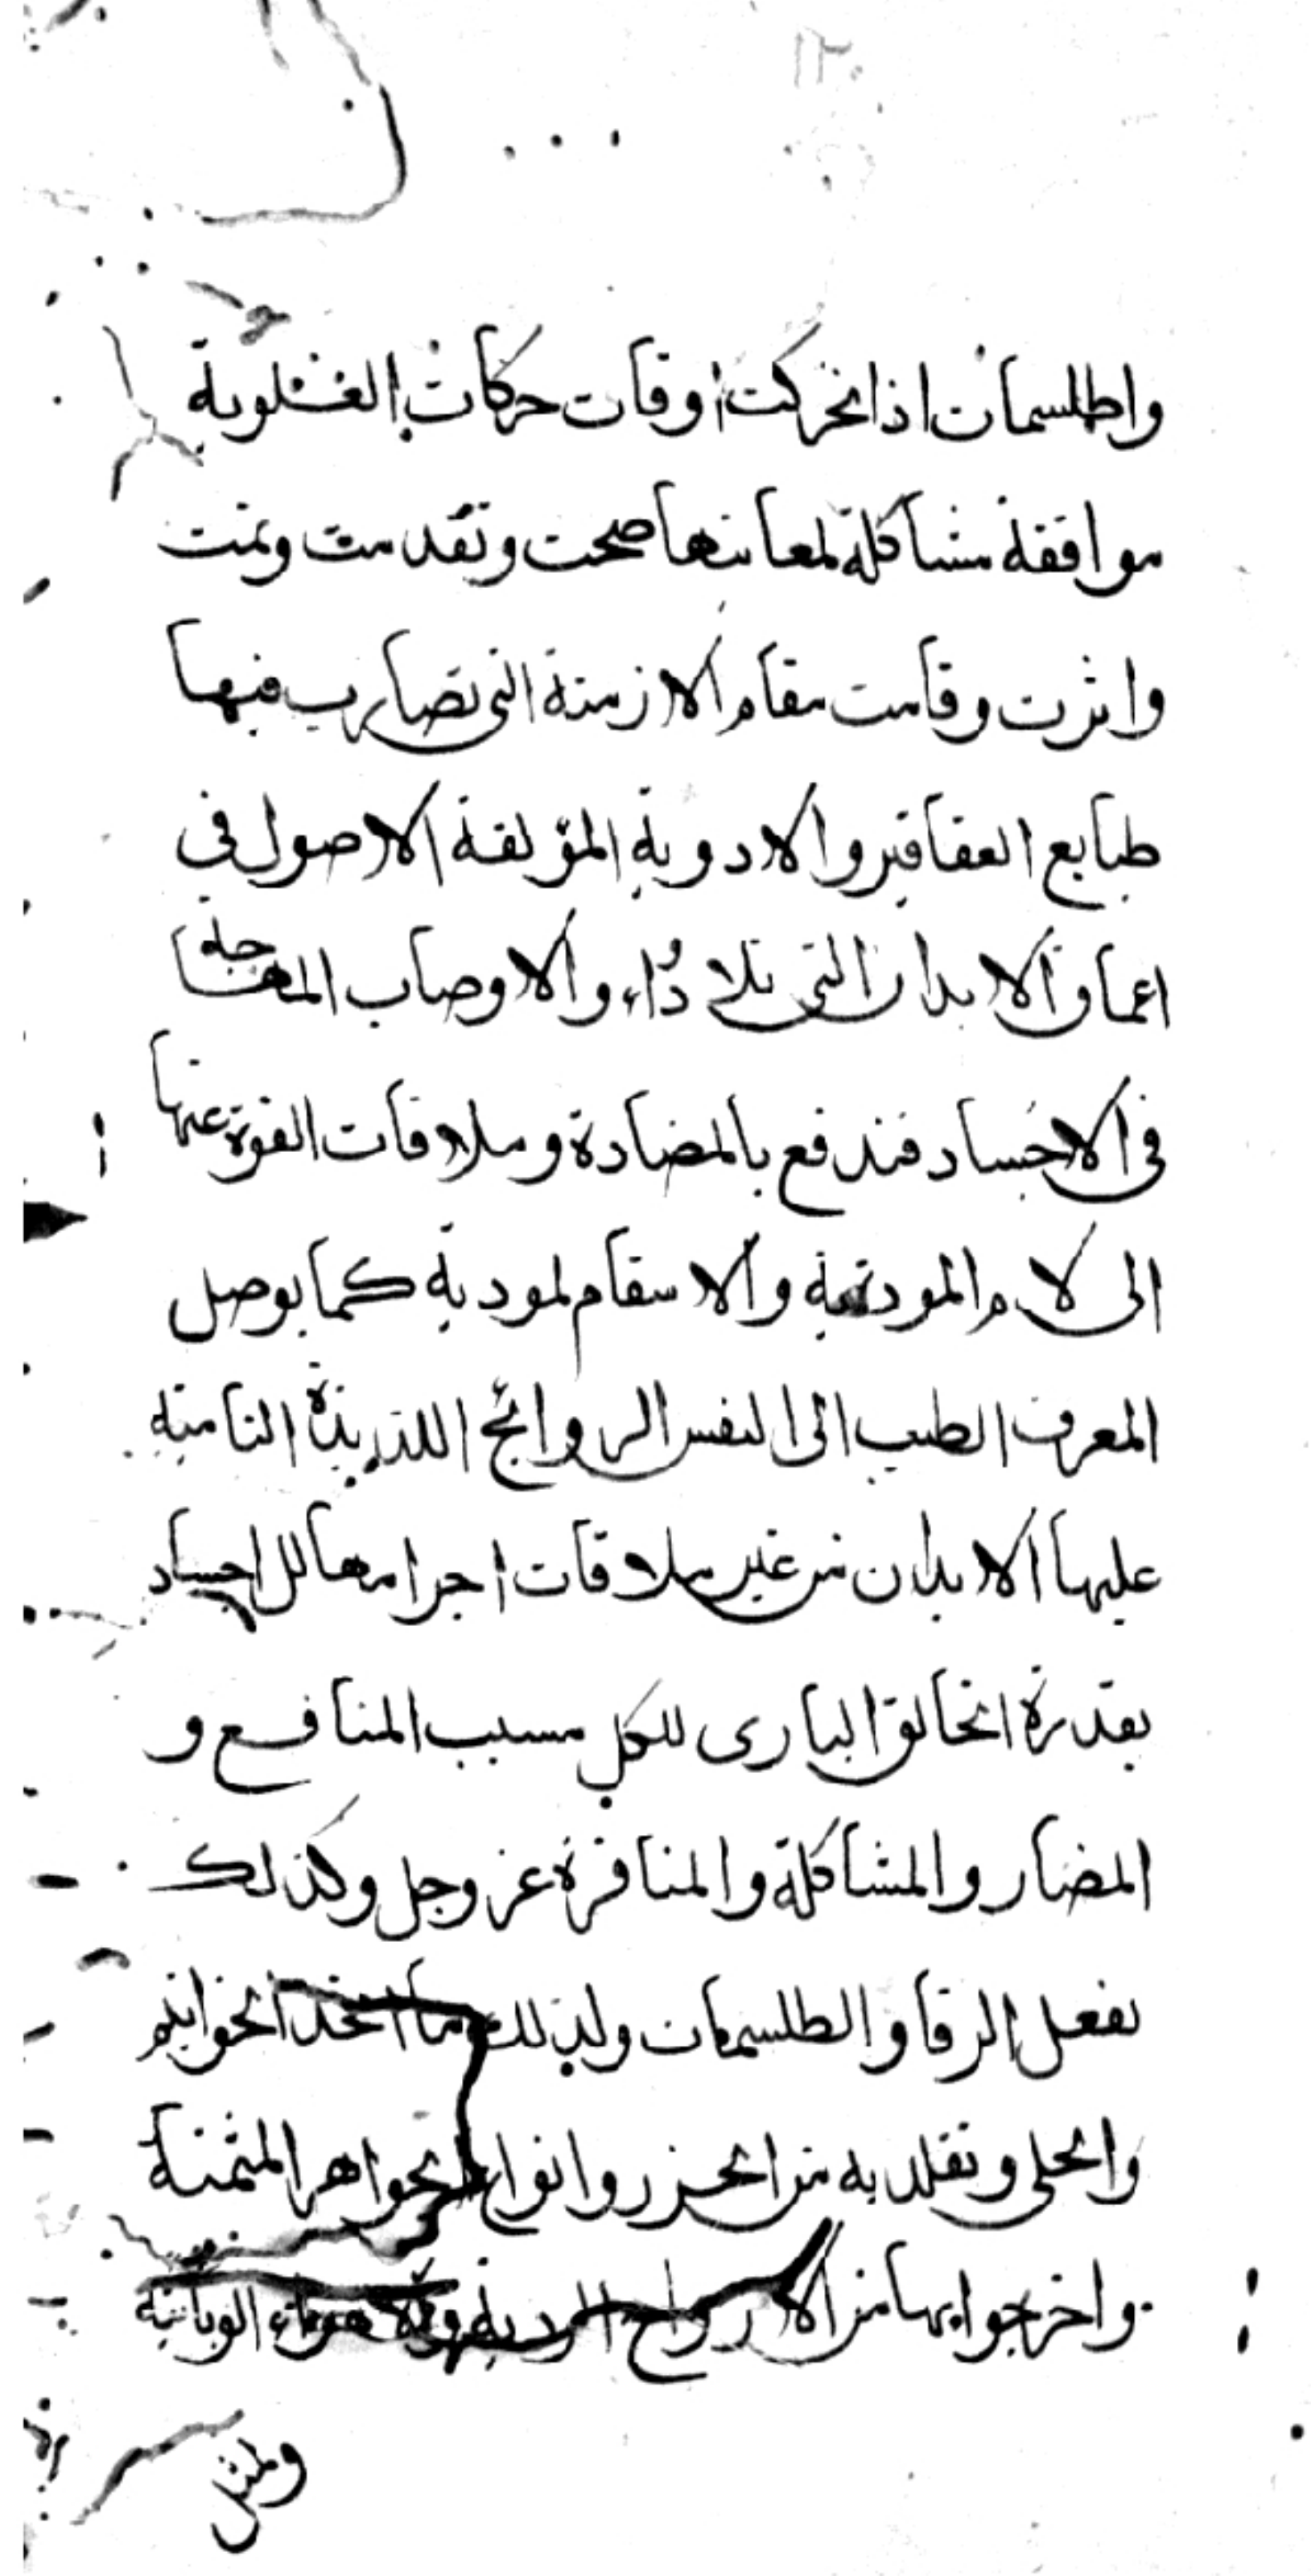 ١٢٠
واطلسمات اذا تحركت اوقات حركات العلوية
موافقة مشاكلة لمعانيها صحت وتقدمت وتمت
واثرت وقامت مقام الازمنة التي تضارب فيها
طبايع العقاقير والادوية المؤلفة الاصول في
اعماق الابدان التي تلادُّاء والاوصاب المهتاجة
في الاجساد فتدفع بالمضادة وملاقات القوة عنها
الى لام الموذية والاسقام لمودية كما يوصل
المعرف الطيب الى النفس الروائح اللذيذة النامية
عليها الابدان من غير ملاقات اجرامها للاجساد
بقدرة الخالق الباري للكل مسبب المنافع و
المضار والمشاكلة والمنافرة عز وجل وكذلك
يفعل الرقا والطلسمات ولذلك ما اتخذ الخواتيم
والحلي وتقلد به من الخرز وانواع الجواهر المثمنة
واخرجوا بها من الارواح الردية هواء الوبائية
ولمثل